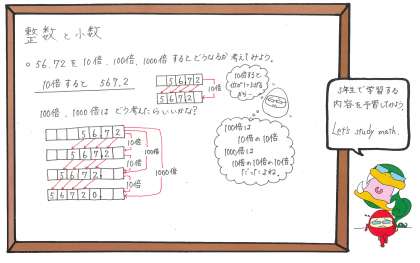 整数と小数
○ 56.72を10倍、100倍、1000倍するとどうなるか考えてみよう。
10倍すると 567.2
5 6 7 2
5 6 7 2
10倍
10倍すると
100倍、1000倍はどう考えたらいいかな？
5 6 7 2
5 6 7 2
5 6 7 2
5 6 7 2 0
10倍
10倍
10倍
100倍
1000倍
100倍は
10倍の10倍
1000倍は
10倍の10倍の10倍
だってよね。
5年生で学習する
内容を予習してみよう。
Let's study math.